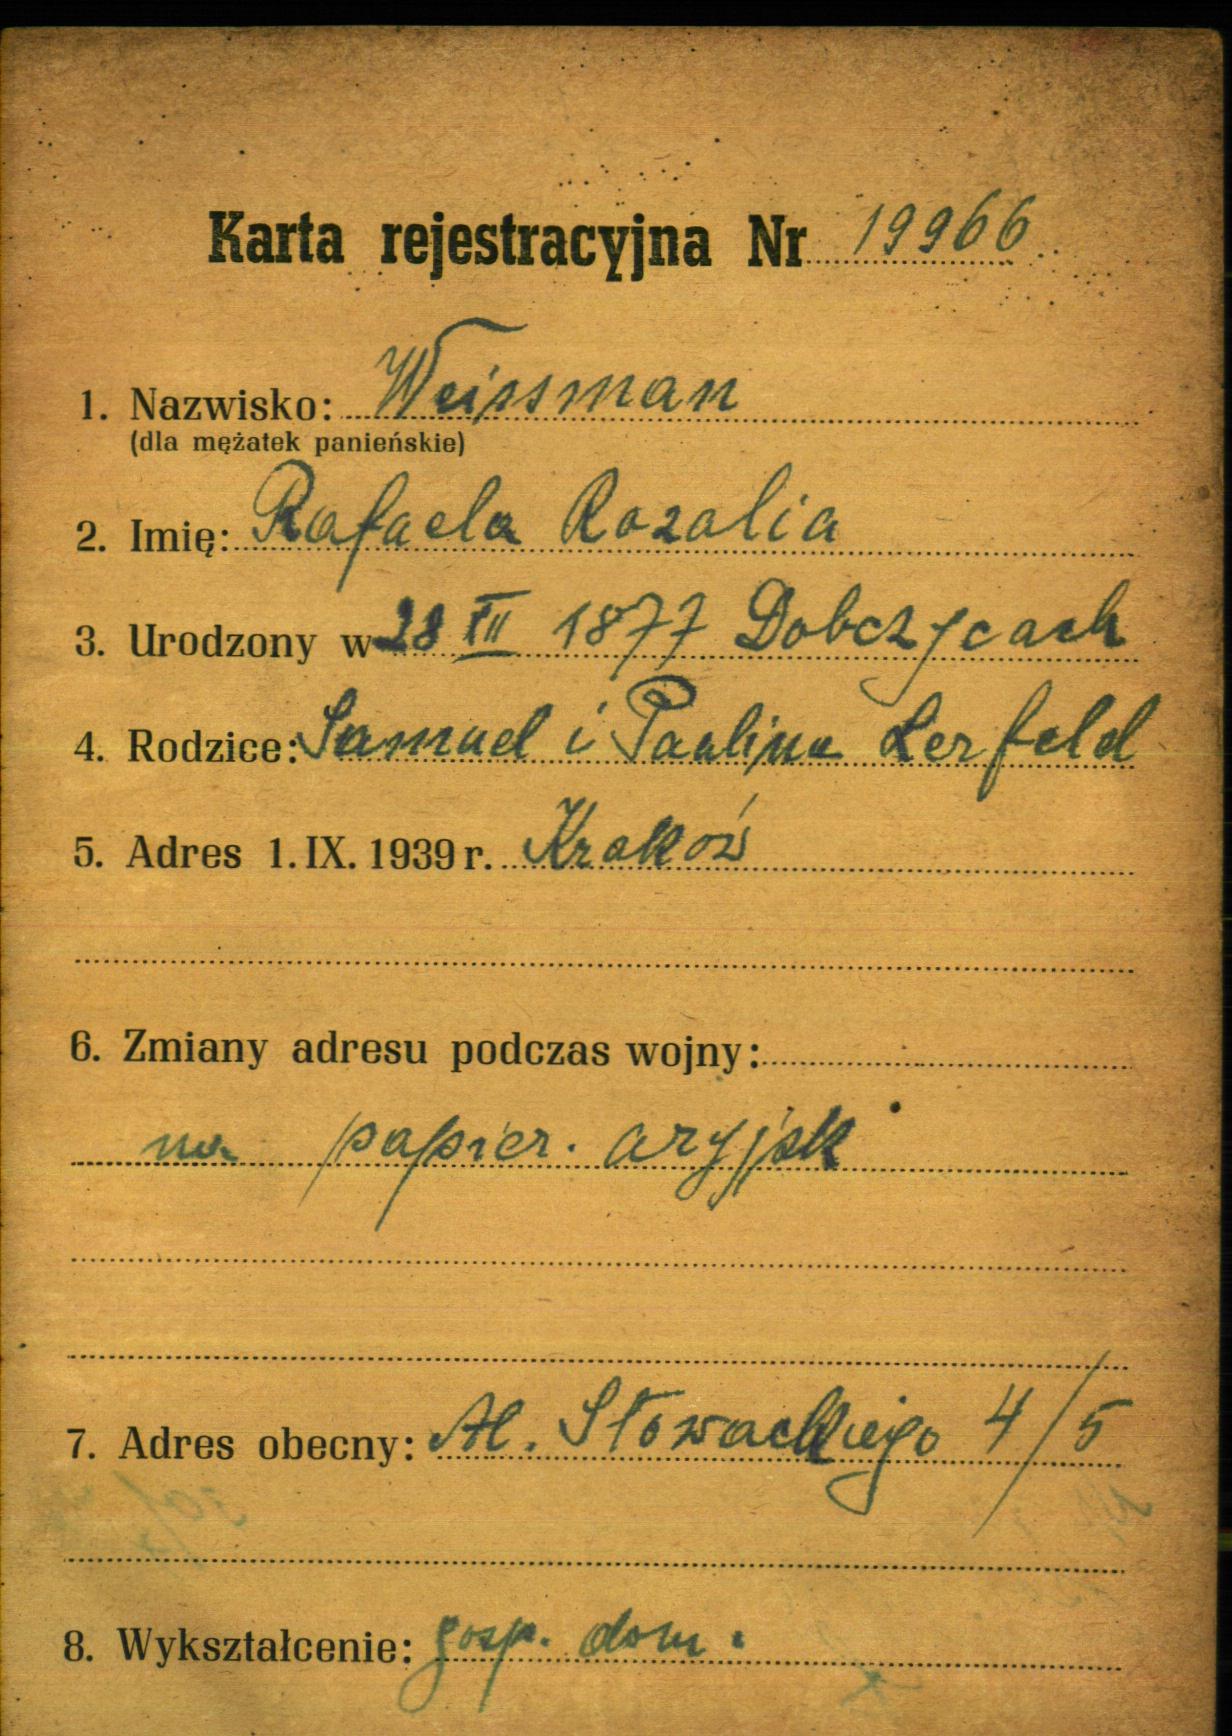 Karta rejestracyjna Nr 19966
1. Nazwisko: Weissman
(dla mężatek panieńskie)
2. Imię: Rafaela Rozalia
3. Urodzony w 28 XII 1877 Dobczycach
4. Rodzice: Samuel i Paulina Lerfeld
5. Adres 1. IX. 1939 r. Kraków
6. Zmiany adresu podczas wojny:
na papier. aryjsk
7. Adres obecny: Al. Słowackiego 4/5
8. Wykształcenie: gosp. dom.